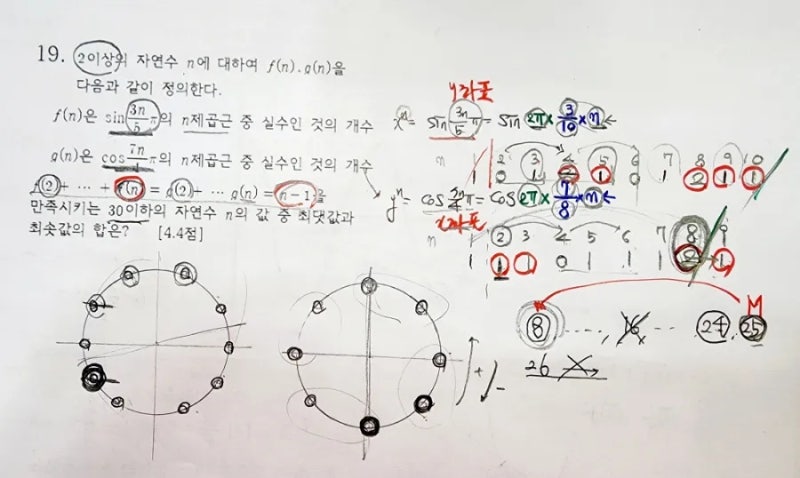 19. 2이상의 자연수 n에 대하여 f(n), g(n)을
다음과 같이 정의한다.
f(n)은 sin 3n/5 π의 n제곱근 중 실수인 것의 개수
g(n)은 cos 7n/4 π의 n제곱근 중 실수인 것의 개수
f(2)+ ⋯ +f(n) = g(2)+ ⋯ g(n) = n-1을
만족시키는 30이하의 자연수 n의 값 중 최댓값과
최솟값의 합은? [4.4점]
y좌표
xⁿ = sin 3n/5 π = sin 2π × 3/10 × n
n 1 2 3 4 5 6 7 8 9 10
0 1 2 1 0 1 2 1 1
yⁿ = cos 7n/4 π = cos 2π × 7/8 × n
x좌표
n 2 3 4 5 6 7 8 9
1 1 1 0 1 1 1 2 1
M
8 ..... 16 ... 24 25
26 ×
+ / -